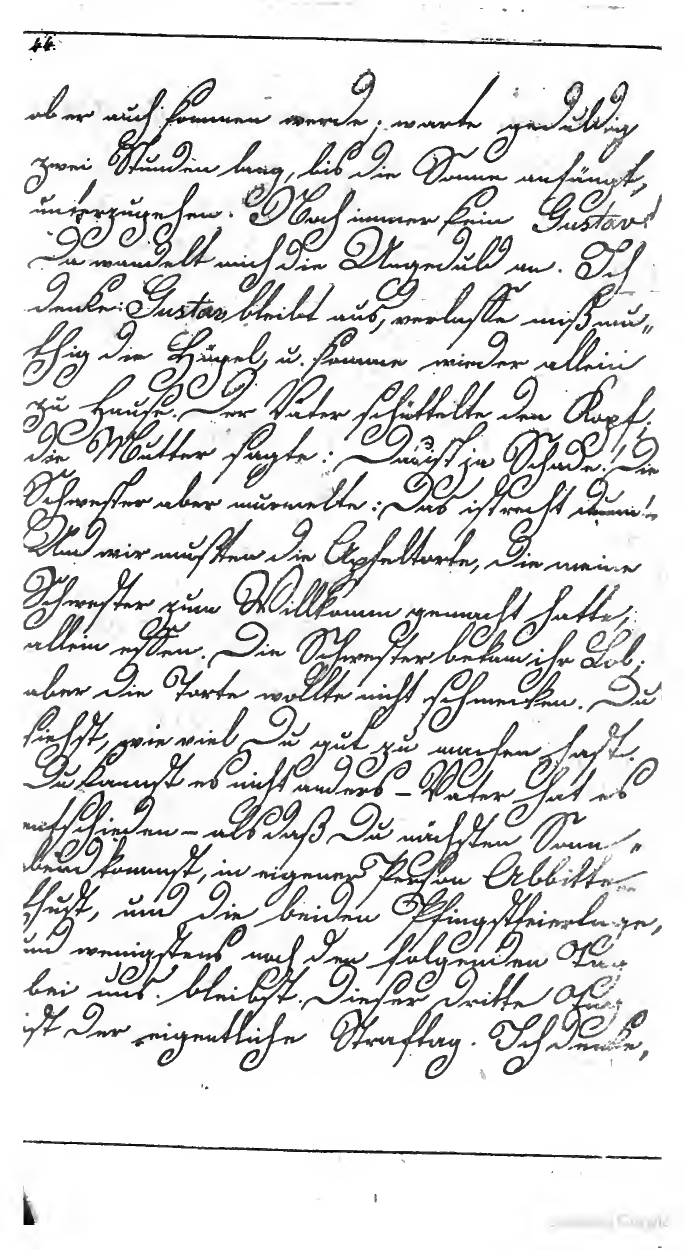 44.
ob er auch kommen werde; warte geduldig
zwei Stunden lang, bis die Sonne anfängt,
unterzugehen. Noch immer kein Gustav!
Da wandelt mich die Ungeduld an. Ich
denke: Gustav bleibt aus, verlasse mißmu„
thig die Hügel, u. komme wieder allein
zu Hause. Der Vater schüttelte den Kopf;
die Mutter sagte: Das ist ja Schade! Die
Schwester aber murmelte: Das ist recht dumm!
Und wir mußten die Apfeltorte, die meine
Schwester zum Willkomm gemacht hatte,
allein essen. Die Schwester bekam ihr Lob;
aber die Torte wollte nicht schmecken. Du
siehst, wie viel Du gut zu machen hast.
Du kannst es nicht anders – Vater hat es
entschieden – als daß Du nächsten Sonn„
abend kommst, in eigener Person Abbitte
thust, und die beiden Pfingstfeiertage,
und wenigstens noch den folgenden Tag
bei uns bleibst. Dieser dritte Tag
ist der eigentliche Straftag. Ich denke,